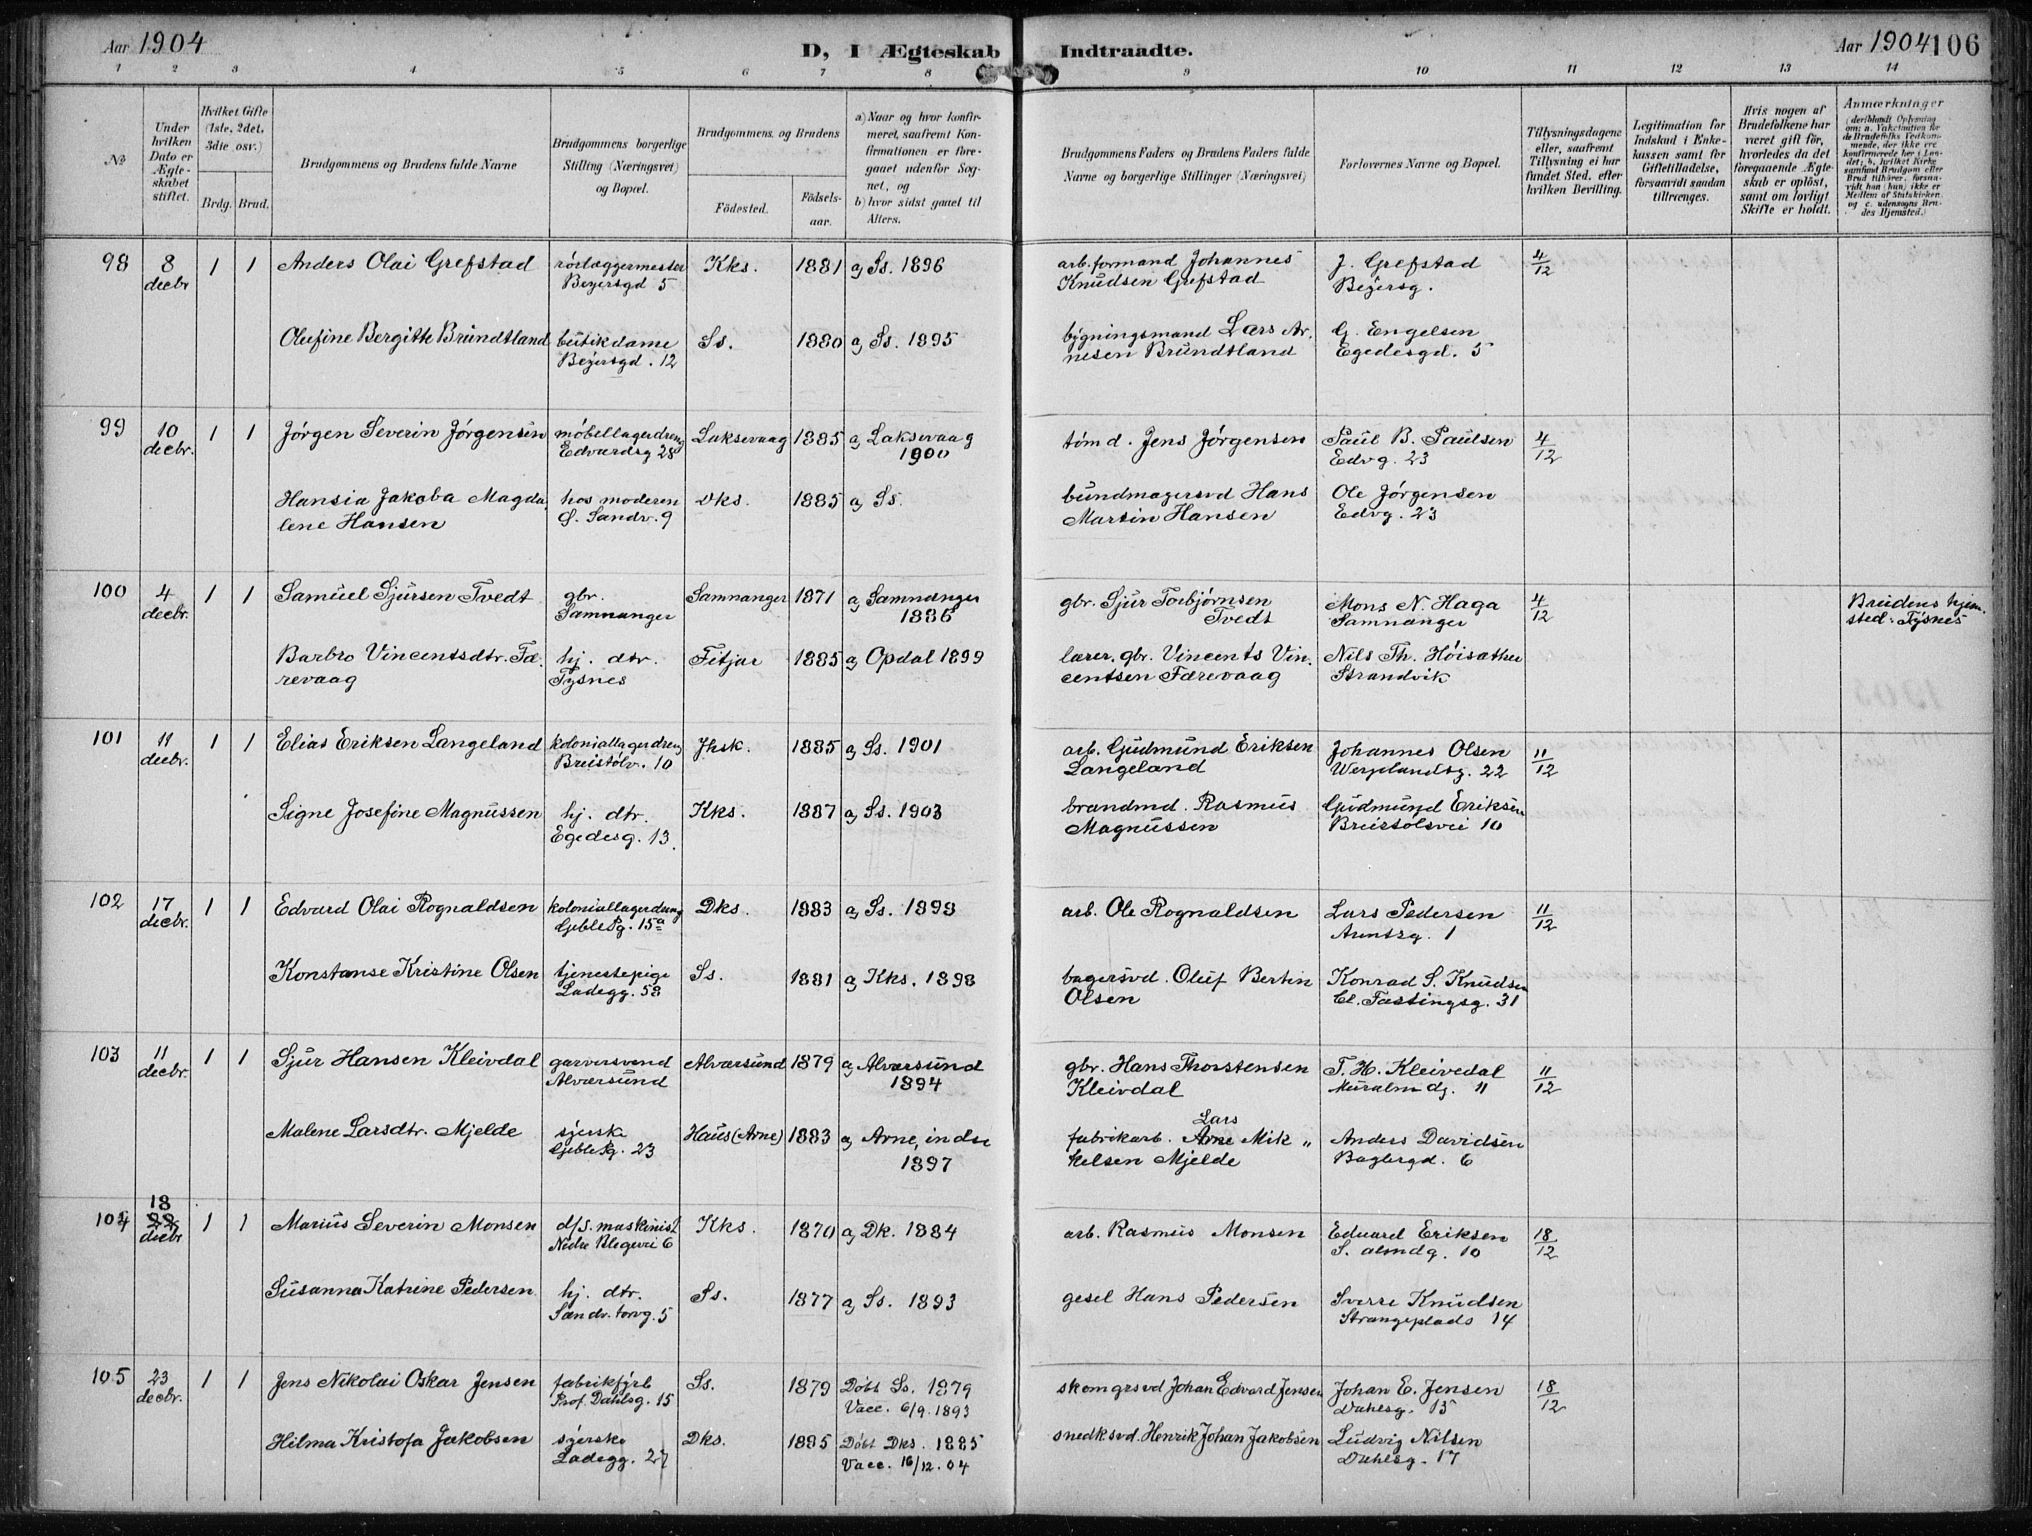 Aar 1904
D, I Ægteskab Indtraadte.
Aar 1904 106
1 2 3 4 5 6 7 8 9 10 11 12 13 14
№
Under hvilken Dato er Ægteskabet stiftet.
Hvilket Gifte (1ste, 2det, 3die osv.)
Brdg. Brud.
Brudgommens og Brudens fulde Navne
Brudgommens borgerlige Stilling (Næringsvei) og Bopæl.
Brudgommens og Brudens
Födested. Födselsaar.
a) Naar og hvor konfirmeret, saafremt Konfirmationen er foregaaet udenfor Sognet, og
b) hvor sidst gaaet til Alters.
Brudgommens Faders og Brudens Faders fulde Navne og borgerlige Stillinger (Næringsvei)
Forlovernes Navne og Bopæl.
Tillysningsdagene eller, saafremt Tillysning ei har fundet Sted, efter hvilken Bevilling.
Legitimation for Indskud i Enkekassen samt for Giftetilladelse, forsaavidt saadan tiltrænges.
Hvis nogen af Brudefolkene har været gift för, hvorledes da det foregaaende Ægteskab er oplöst, samt om lovligt Skifte er holdt.
Anmærkninger (deriblandt Oplysning om: a. Vakcination for de Brudefolks Vedkommende, der ikke ere konfirmerede her i Landet; b. hvilket Kirkesamfund Brudgom eller Brud tilhører, forsaavidt han (hun) ikke er Medlem af Statskirken, og c. udensogns Brudes Hjemsted.)
98 8 decbr 1 1 Anders Olai Grefstad rörlæggermester Beyersgd 5 Kks. 1881 a) Ss. 1896 arb.formand Johannes Knudsen Grefstad J. Grefstad Beyersg. 4/12
Olufine Bergitte Brundtland butikdame Beyersgd. 12 Ss. 1880 a) Ss. 1895 bygningsmand Lars Arnesen Brundtland G. Engelsen Egedesgd. 5
99 10 decbr. 1 1 Jørgen Severin Jørgensen møbellagerdreng Edvardsg 28 Laksevaag 1885 a) Laksevaag 1900 tømd. Jens Jørgensen Paul B. Paulsen Edvg. 23 4/12
Hansia Jakoba Magdalene Hansen hos moderen Ø. Sandv. 9 Dks. 1885 a) Ss. bundmagersvd Hans Martin Hansen Ole Jørgensen Edvg. 23
100 4 decbr. 1 1 Samuel Sjursen Tvedt gbr. Samnanger Samnanger 1871 a) Samnanger 1886 gbr. Sjur Torbjørnsen Tvedt Mons N. Haga Samnanger 4/12 Brudens hjemsted: Tysnes
Barbro Vincentsdtr. Færevaag hj. dtr. Tysnes Fitjar 1885 a) Opdal 1899 lærer, gbr. Vincents Vincentsen Færevaag Nils Th. Høisæther Strandvik
101 11 decbr. 1 1 Elias Eriksen Langeland koloniallagerdreng Breistølv. 10 Jhsk. 1885 a) Ss. 1901 arb. Gudmund Eriksen Langeland Johannes Olsen Wergelandsg. 22 11/12
Signe Josefine Magnussen hj. dtr. Egedesg. 13. Kks. 1887 a) Ss. 1903 brandmd. Rasmus Magnussen Gudmund Eriksen Breistølsvei 10
102 17 decbr. 1 1 Edvard Olai Rognaldsen koloniallagerdreng Geble Pg. 15a Dks. 1883 a) Ss. 1898 arb. Ole Rognaldsen Lars Pedersen Arentzg. 1 11/12
Konstanse Kristine Olsen tjenestepige Ladegg. 58 Ss. 1881 a) Kks. 1898 bagersvd. Oluf Bertin Olsen Konrad S. Knudsen Cl. Fastingsg. 31
103 11 decbr. 1 1 Sjur Hansen Kleivdal garversvend Alværsund Alværsund 1879 a) Alværsund 1894 gbr. Hans Thorstensen Kleivdal T. H. Kleivedal Muralmdg. 11 11/12
Malene Larsdtr. Mjelde syerske Geble Pg. 23 Haus (Arne) 1883 a) Arne, indre 1897 fabrikarb. Lars Arne Mikkelsen Mjelde Anders Davidsen Baglergd. 6
104 18 22 decbr 1 1 Marius Severin Monsen d/s. maskinist Nedre Blegevei 6 Kks. 1870 a) Dk. 1884 arb. Rasmus Monsen Eduard Eriksen S. almdg. 10 18/12
Susanna Katrine Pedersen hj. dtr. Sandv. torvg. 5 Ss. 1877 a) Ss. 1893 gesel Hans Pedersen Sverre Knudsen Strangeplads 14
105 23 decbr. 1 1 Jens Nikolai Oskar Jensen fabrikfyrb Prof. Dahlsg. 15 Ss. 1879 Døbt Ss. 1879 Vacc. 6/9. 1893 skomgrsvd Johan Edvard Jensen Johan E. Jensen Dahlsg. 15 18/12
Hilma Kristofa Jakobsen syerske Ladegg. 27 Dks. 1885 Døbt Dks. 1885 Vacc. 16/12. 04 snedksvd. Henrik Johan Jakobsen Ludvig Nilsen Dahlsg. 17